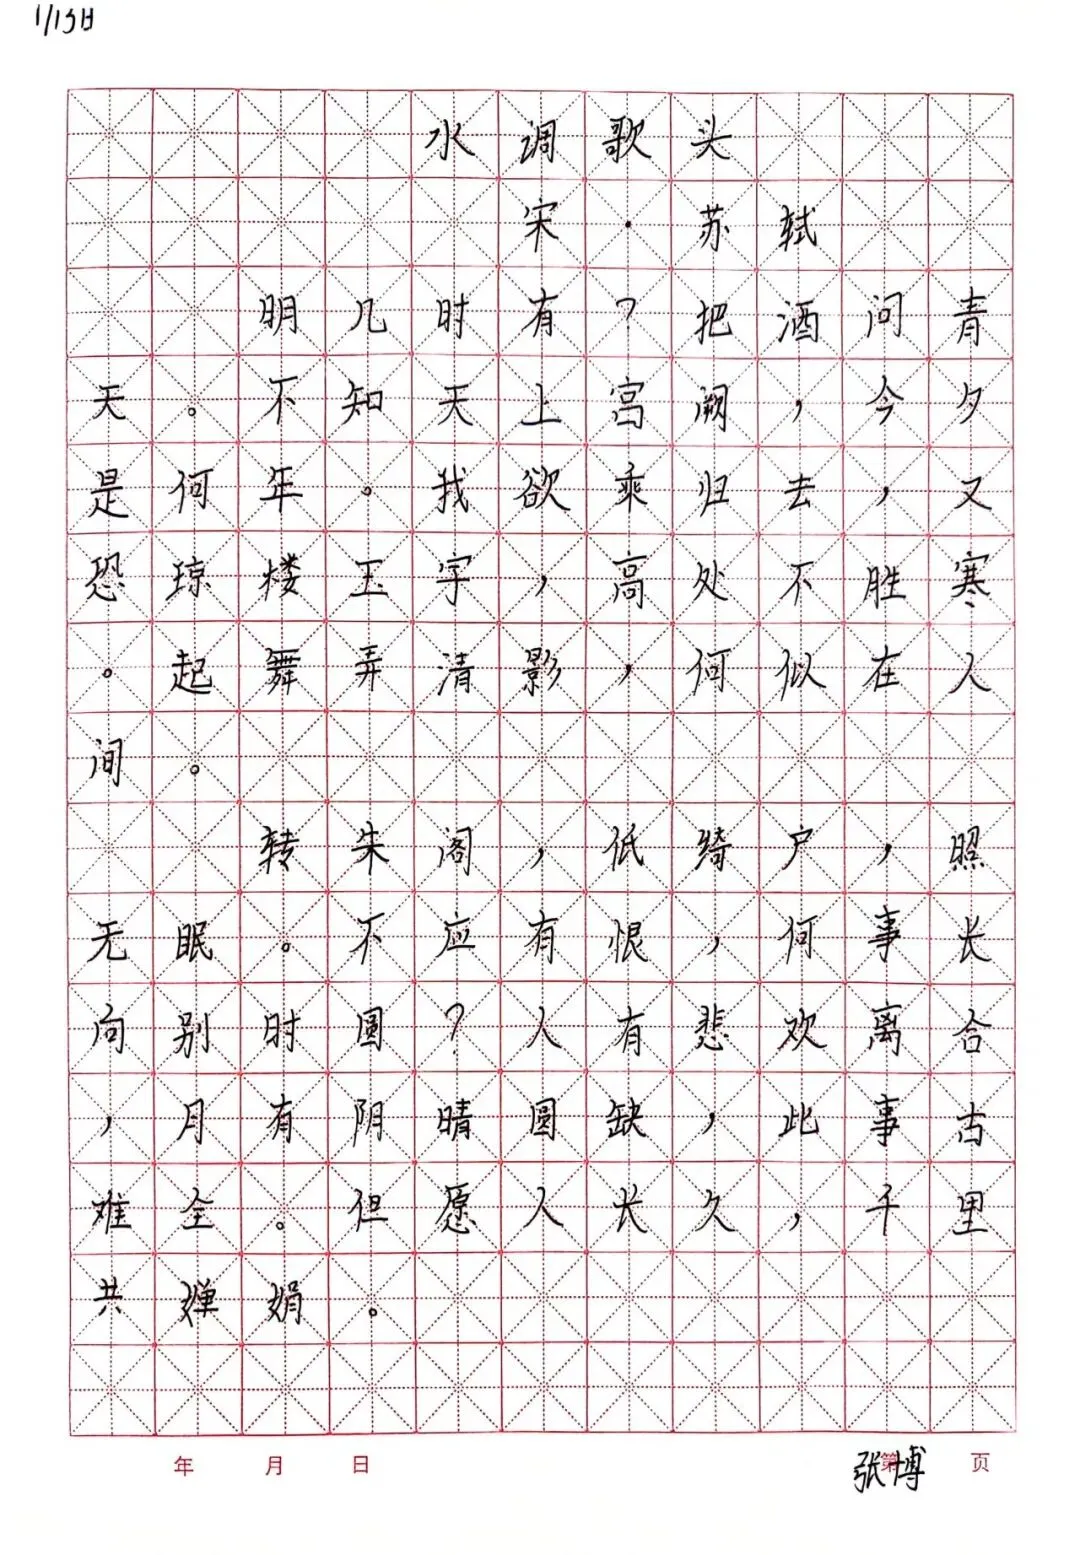 1/13日
水调歌头
宋·苏轼
明几时有？把酒问青
天。不知天上宫阙，今夕
是何年。我欲乘归去，又
恐琼楼玉宇，高处不胜寒
。起舞弄清影，何似在人
间。
转朱阁，低绮户，照
无眠。不应有恨，何事长
向别时圆？人有悲欢离合
，月有阴晴圆缺，此事古
难全。但愿人长久，千里
共婵娟。
年 月 日 第 页
张博